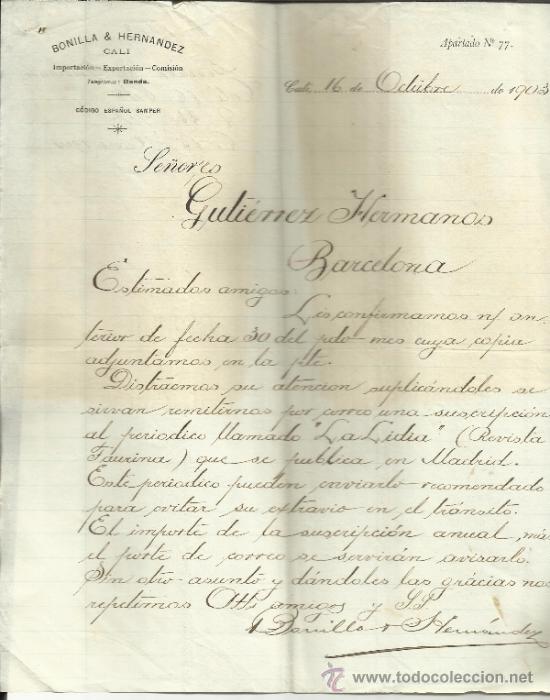 BONILLA & HERNANDEZ
CALI
Importación — Exportación — Comisión
Telegramas: Blanda.
CÓDIGO ESPAÑOL SAMPER
Apartado Nº 77-
Cali, 16 de Octubre de 1903
Señores
Gutiérrez Hermanos
Barcelona
Estimados amigos:
Les confirmamos n/ an-
terior de fecha 30 del pdo mes cuya copia
adjuntamos en la pte.
Distraemos su atencion suplicándoles se
sirvan remitirnos por correo una suscripción
al periodico llamado "La Lidia" (Revista
Taurina) que se publica en Madrid.
Este periodico pueden enviarlo recomendado
para evitar su extravio en el tránsito.
El importe de la suscripción anual, más
el porte de correo se servirán avisarlo.
Sin otro asunto y dándoles las grácias nos
repetimos amigos y SS
Bonilla & Hernández
www.todocoleccion.net